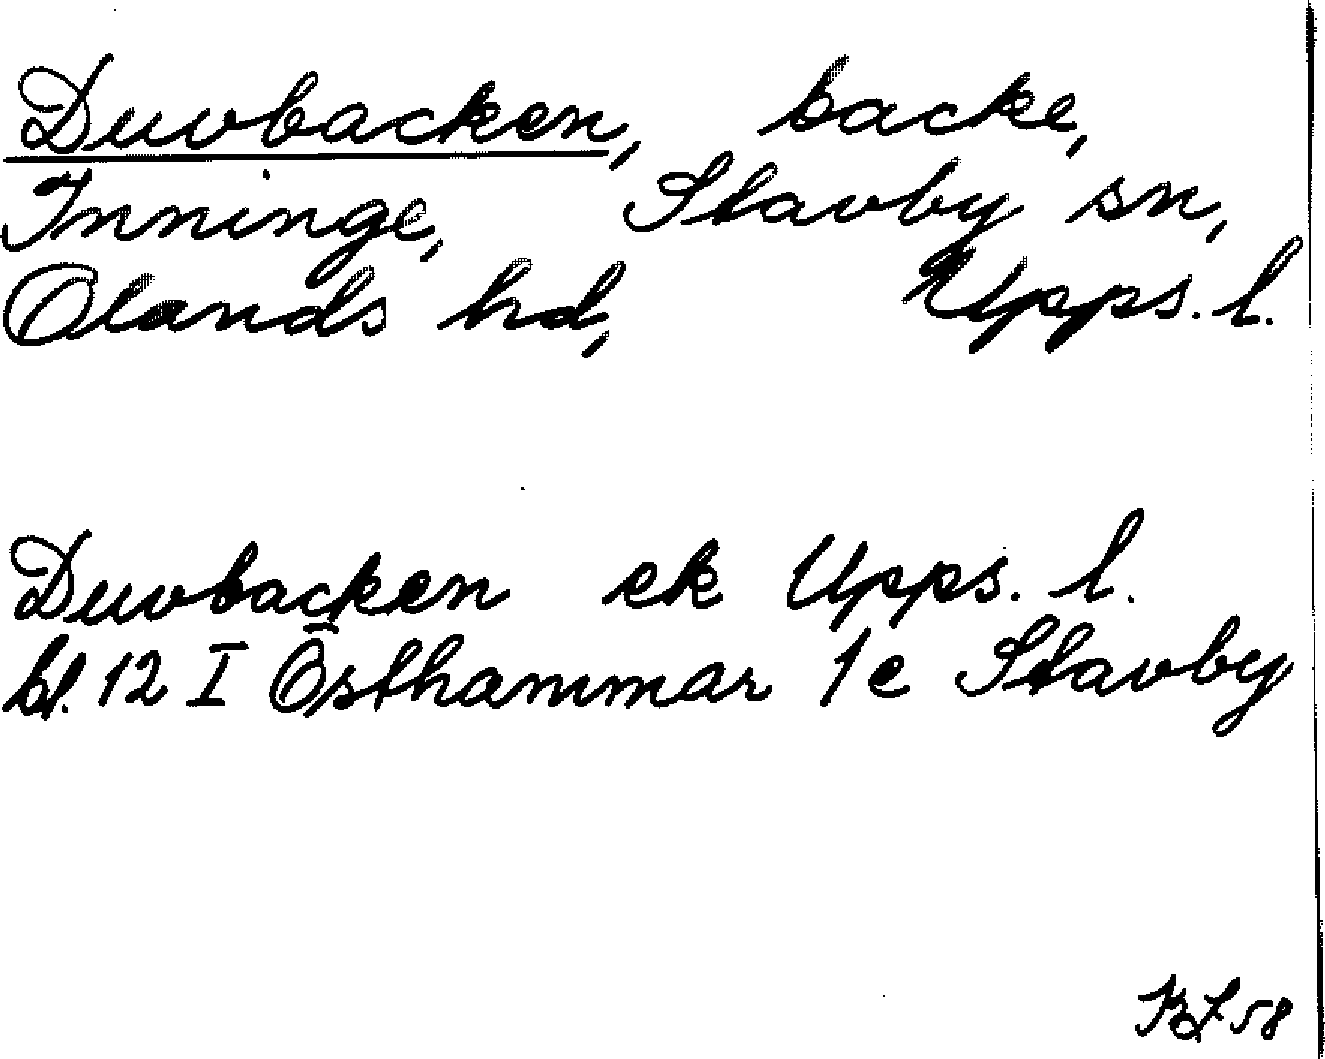 Duvbacken, backe,
Inninge, Stavby sn,
Olands hd, Upps. l.
Duvbacken ek Upps. l.
bl. 12 I Östhammar 1e Stavby